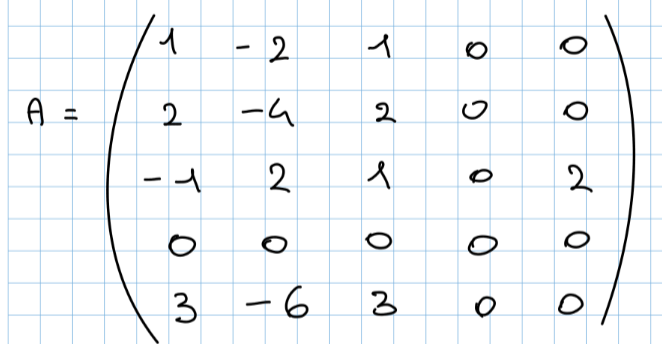 1 -2 1 0 0
A = 2 -4 2 0 0
-1 2 1 0 2
0 0 0 0 0
3 -6 3 0 0